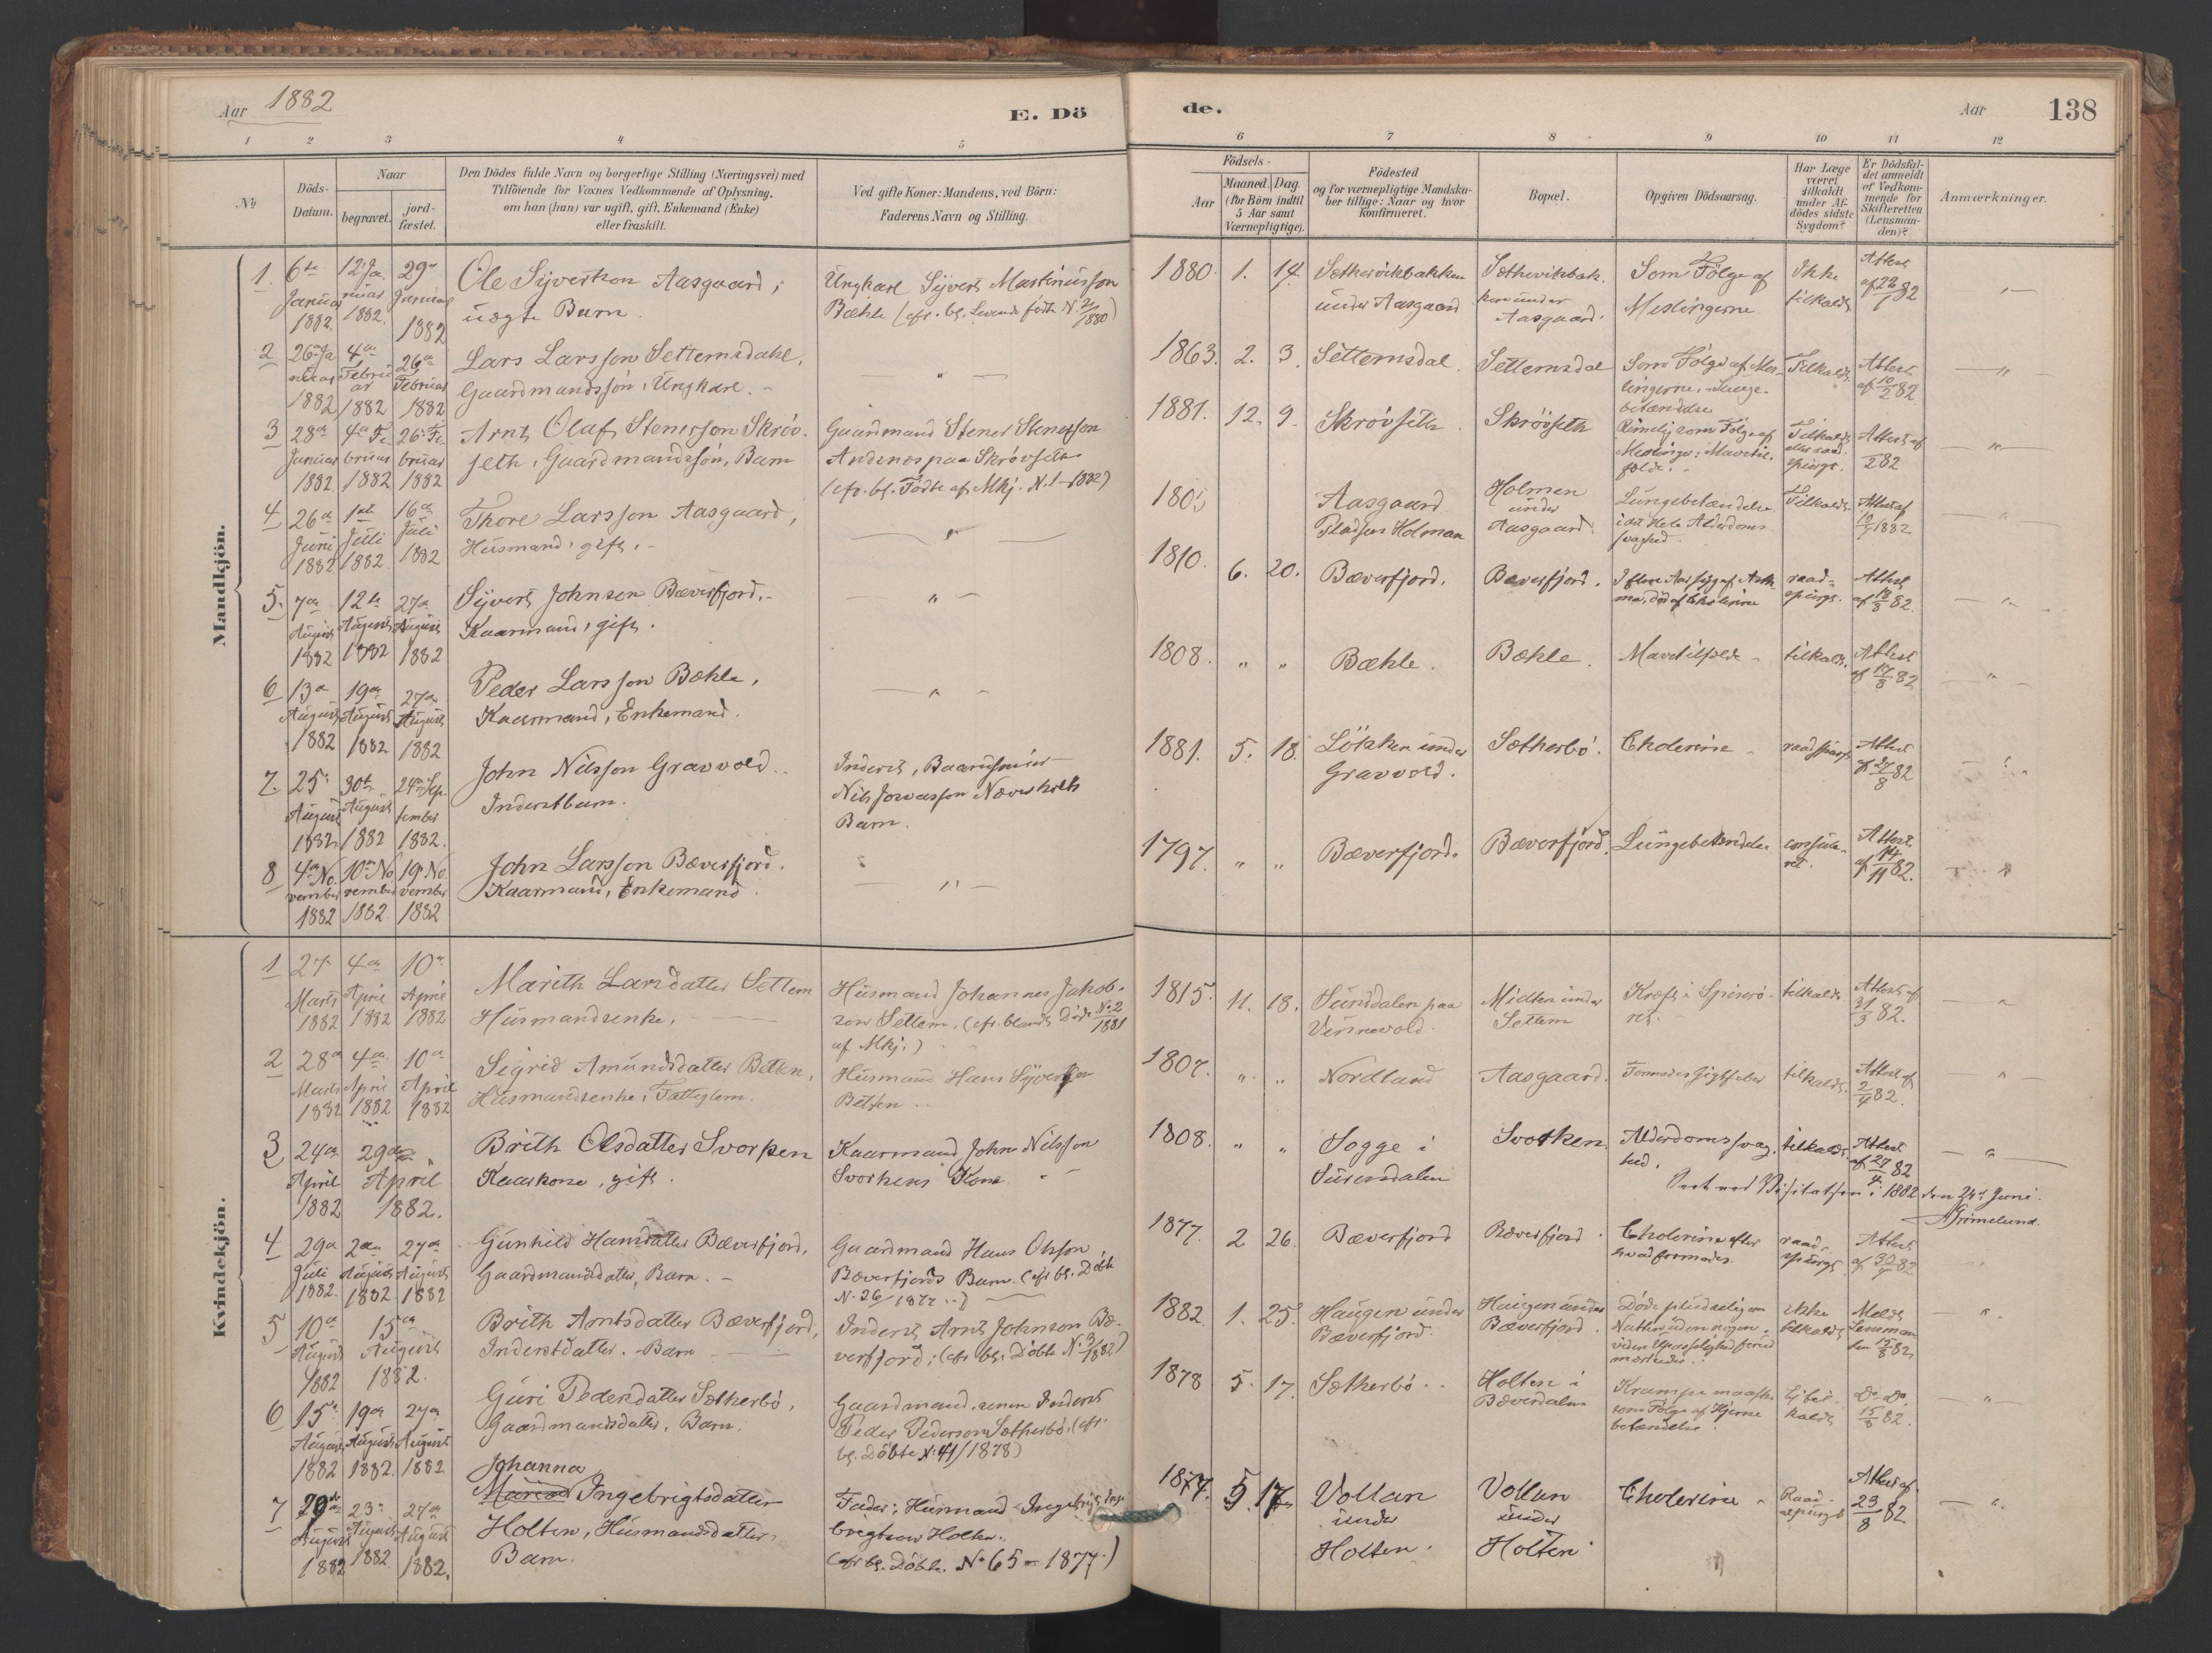 Aar 1882
E. Dö
de.
Aar 138
1 2 3 4 5 6 7 8 9 10 11 12
No
Döds-
Datum.
Naar
begravet.
jord-
fæstet.
Den Dödes fulde Navn og borgerlige Stilling (Næringsvei) med
Tilföiende for Voxnes Vedkommende af Oplysning,
om han (hun) var ugift, gift, Enkemand (Enke)
eller fraskilt.
Ved gifte Koner: Mandens, ved Börn:
Faderens Navn og Stilling.
Födsels-
Aar
Maaned. Dag.
(for Börn indtil
5 Aar samt
Værnepligtige).
Födested
og for værnepligtige Mandska-
ber tillige: Naar og hvor
konfirmeret.
Bopæl.
Opgiven Dödsaarsag.
Har Læge
været
tilkaldt
under Af-
dödes sidste
Sygdom?
Er Dödsfal-
det anmeldt
af Vedkom-
mende for
Skifteretten
(Lensman-
den)?
Anmærkninger.
Mandkjön.
1.
6te
Januar
1882.
12 Ja
nuar
1882.
29de
Januar
1882
Ole Sÿvertson Aasgaard,
uægte Barn.
Ungkarl Sÿvert Martinusson
Bæhle (cfr. bl. Levende fødte N. 2/1880)
1880. 1. 14.
Sæthervikbakken
under Aasgaard
Sæthervikbak-
ken under
Aasgaard.
Som Følge af
Meslingerne
Ikke
tilkaldt.
Attest
af 22/1 82
2
26. Ja
nuar
1882
4de
Februar
1882
26de
Februar
1882
Lars Larsson Settemsdahl,
Gaardmandssøn, Ungkarl.
1863. 2. 3.
Settemsdal.
Settemsdal
Som Følge af Mes-
lingerne, Lunge-
betændelse
Tilkaldt.
Attest
af 10/2 82
3
28de
Januar
1882
4de Fe
bruar
1882
26. Fe
bruar
1882
Arnt Olaf Stenerson Skrøv-
seth, Gaardmandssøn, Barn
Gaardmand Stener Stenerson
Andenes paa Skrøvseth
(cfr. bl. Fødte af Mkj. N. 1 - 1882)
1881. 12. 9.
Skrøvseth
Skrøvseth
Rimelig som Følge af
Meslinger: Mavetil-
fælde.
Tilkaldt
eller raad-
spurgt.
Attest af
/2 82
4
26de
Juni
1882
1ste
Juli
1882
16de
Juli
1882
Thore Larsson Aasgaard,
Husmand, gift.
1805
Aasgaard
Pladsen Holman
Holmen
under
Aasgaard.
Lungebetændelse
i det Hele Alderdoms
svaghed
Tilkaldt.
Attest af
1882
5.
7de
August
1882
12te
August
1882
27de
August
1882
Sÿvert Johnsen Bæverfjord.
Kaarmand, gift.
1810. 6. 20.
Bæverfjord.
Bæverfjord.
I flere Aar syg af Asth
ma, død af Cholerine
raad-
spurgt.
Attest
af 18/8 82.
6
13de
August
1882
19de
August
1882.
27de
August
1882
Peder Larsson Bæhle,
Kaarmand, Enkemand.
1808. " "
Bæhle.
Bæhle.
Mavetilfælde
tilkaldt.
Attest
af 17/8 82
7.
25.
August
1882
30te
August
1882
24de Sep-
tember
1882.
John Nilsson Gravvold.
Inderstbarn.
Inderst, Baardsmier
Nils Jonasson Næverholt
Barn.
1881. 5. 18.
Løkken under
Gravvold.
Sætherbø.
Cholerine
raadspurgt
Attest
af 27/8 82
8
4de No
vember
1882
10de No
vember
1882
19. No.
vember
1882
John Larsson Bæverfjord.
Kaarmand, Enkemand.
1797. " "
Bæverfjord.
Bæverfjord.
Lungebetændelse
consule-
ret.
Attest.
af 14/11 82.
Kvindekjön.
1
27.
Marts
1882
4de
April
1882
10de
April
1882
Marith Larsdatter Settem
Husmandsenke.
Husmand Johannes Jakob-
son Settem. (cfr. blandt Døde N. 2/1881
af Mkj.)
1815. 11. 18.
Sunddalen paa
Vinnevold.
Midten under
Settem
Kræft i Spiserø-
ret.
tilkaldt.
Attest af
31/3 82.
2
28de
Marts
1882
4de
April
1882
10de
April
1882
Sigrid Amundsdatter Betten,
Husmandsenke, Fattiglem.
Husmand Hans Sÿvertson
Betten.
1807. " "
Nordland
Aasgaard.
Formodet Gigtfeber
tilkaldt.
Attest af
2/4 82.
3
24de
April
1882
29de
April
1882.
Brith Olsdatter Svorken
Kaarkone, gift.
Kaarmand John Nilsson
Svorkens Kone
1808. " "
Sogge i
Surendalen
Svorken.
Alderdomssvag-
hed.
tilkaldt.
Attest
af 27/4 82
Seet ved Visitatsen i 1882 den 24de Juni.
A. Grimelund.
4
29de
Juli
1882.
2den
August
1882
27de
August
1882
Gunhild Hansdatter Bæverfjord,
Gaardmandsdatter, Barn.
Gaardmand Hans Olsson
Bæverfjords Barn. (cfr bl. Døbte
N. 26/1877.)
1877. 2 26.
Bæverfjord
Bæverfjord.
Cholerine efter
hvad formodes.
raad-
spurgt
Attest
af 30/7 82
5
10de
August
1882
15de
August
1882.
Brith Arntsdatter Bæverfjord,
Inderstdatter. Barn
Inderst Arnt Johnson Bæ-
verfjord; (cfr bl. Døbte N. 3/1882)
1882. 1. 25.
Haugen under
Bæverfjord.
Haugen under
Bæverfjord.
Døde pludselig om
Natten uden nogen
videre Upasselighed forud
mærkedes.
ikke
tilkaldt
Meldt
Lensman
den 15/8 82,
6
15de
August
1882
19de
August
1882.
27de
August
1882.
Guri Pedersdatter Sætherbø,
Gaardmandsdatter, Barn.
Gaardmand, senere Inderst
Peder Pederson Sætherbø, (cfr
bl. Døbte N. 41/1878)
1878. 5. 17.
Sætherbø.
Holten i
Bæverdalen
Krampe maaske
som Følge af Hjerne
betændelse.
Ej til-
kaldt
Do Do
15/8 82.
7
20de
August
1882
23de
August
1882.
27de
August
1882.
Johanna
Ingebrigtsdatter
Holten, Husmandsdatter,
Barn.
Fader: Husmand Ingebrigt Inge
brigtson Holten.
(cfr bl. Døbte. No 65 - 1877.)
1877. 5 17
Vollan
under
Holten.
Vollan
under
Holten.
Cholerine
Raad-
spurgt
Attest af
23/8 82